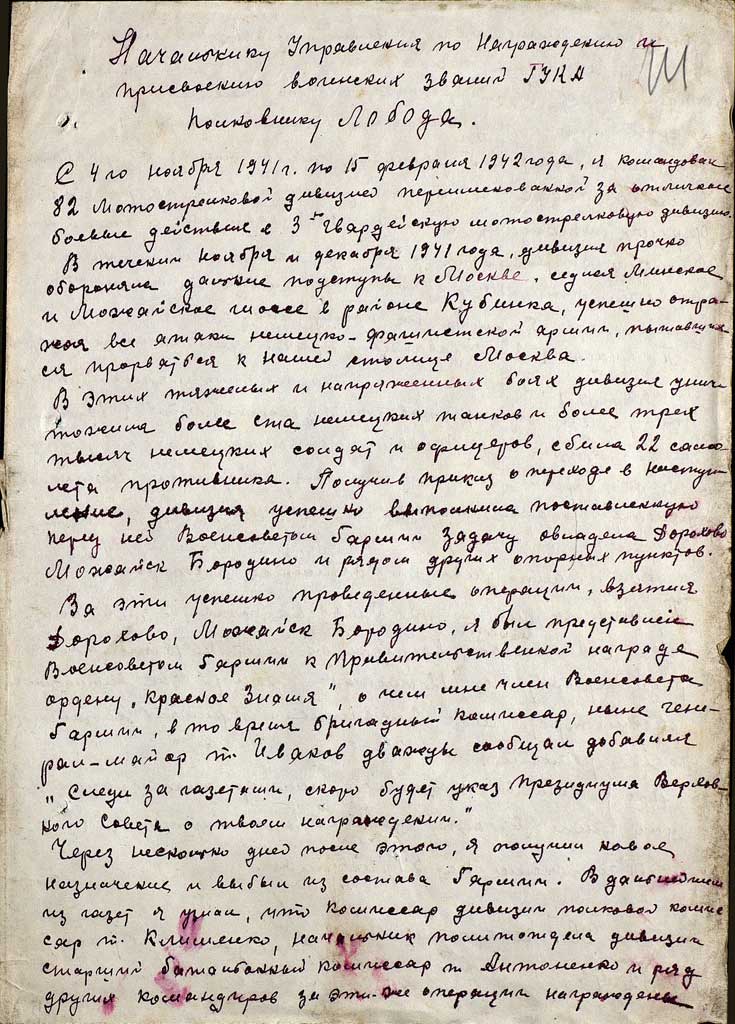 Начальнику Управления по Награждению и
присвоению воинских званий ГУКА
Полковнику Лобода.
С 4го ноября 1941г. по 15 февраля 1942 года, я командовал
82 Мотострелковой дивизией переименованной за отличные
боевые действия в 3ю Гвардейскую мотострелковую дивизию.
В течении ноября и декабря 1941 года, дивизия прочно
обороняла дальние подступы к Москве, седлая Минское
и Можайское шоссе в районе Кубинка, успешно отра-
жая все атаки немецко-фашистской армии, пытавших
ся прорваться к нашей столице Москва.
В этих тяжелых и напряженных боях дивизия унич
тожила более ста немецких танков и более трех
тысяч немецких солдат и офицеров, сбила 22 само
лета противника. Получив приказ о переходе в наступ
ление, дивизия успешно выполнила поставленную
перед ней Военсоветом 5армии задачу овладела Дорохово
Можайск Бородино и рядом других опорных пунктов.
За эти успешно проведенные операции, взятия
Дорохово, Можайск Бородино, я был представлен
Военсоветом 5армии к Правительственной награде
ордену „Красное Знамя", о чем мне член Военсовета
5армии, в то время бригадный комиссар, ныне гене-
рал-майор т. Иванов дважды сообщал добавляя
„Следи за газетами, скоро будет указ Президиума Верхов-
ного Совета о твоем награждении."
Через несколько дней после этого, я получил новое
назначение и выбыл из состава 5армии. В дальнейшем
из газет я узнал, что комиссар дивизии полковой комис
сар т. Клименко, начальник политотдела дивизии
старший батальонный комиссар т Антоненко и ряд
других командиров за эти-же операции награждены